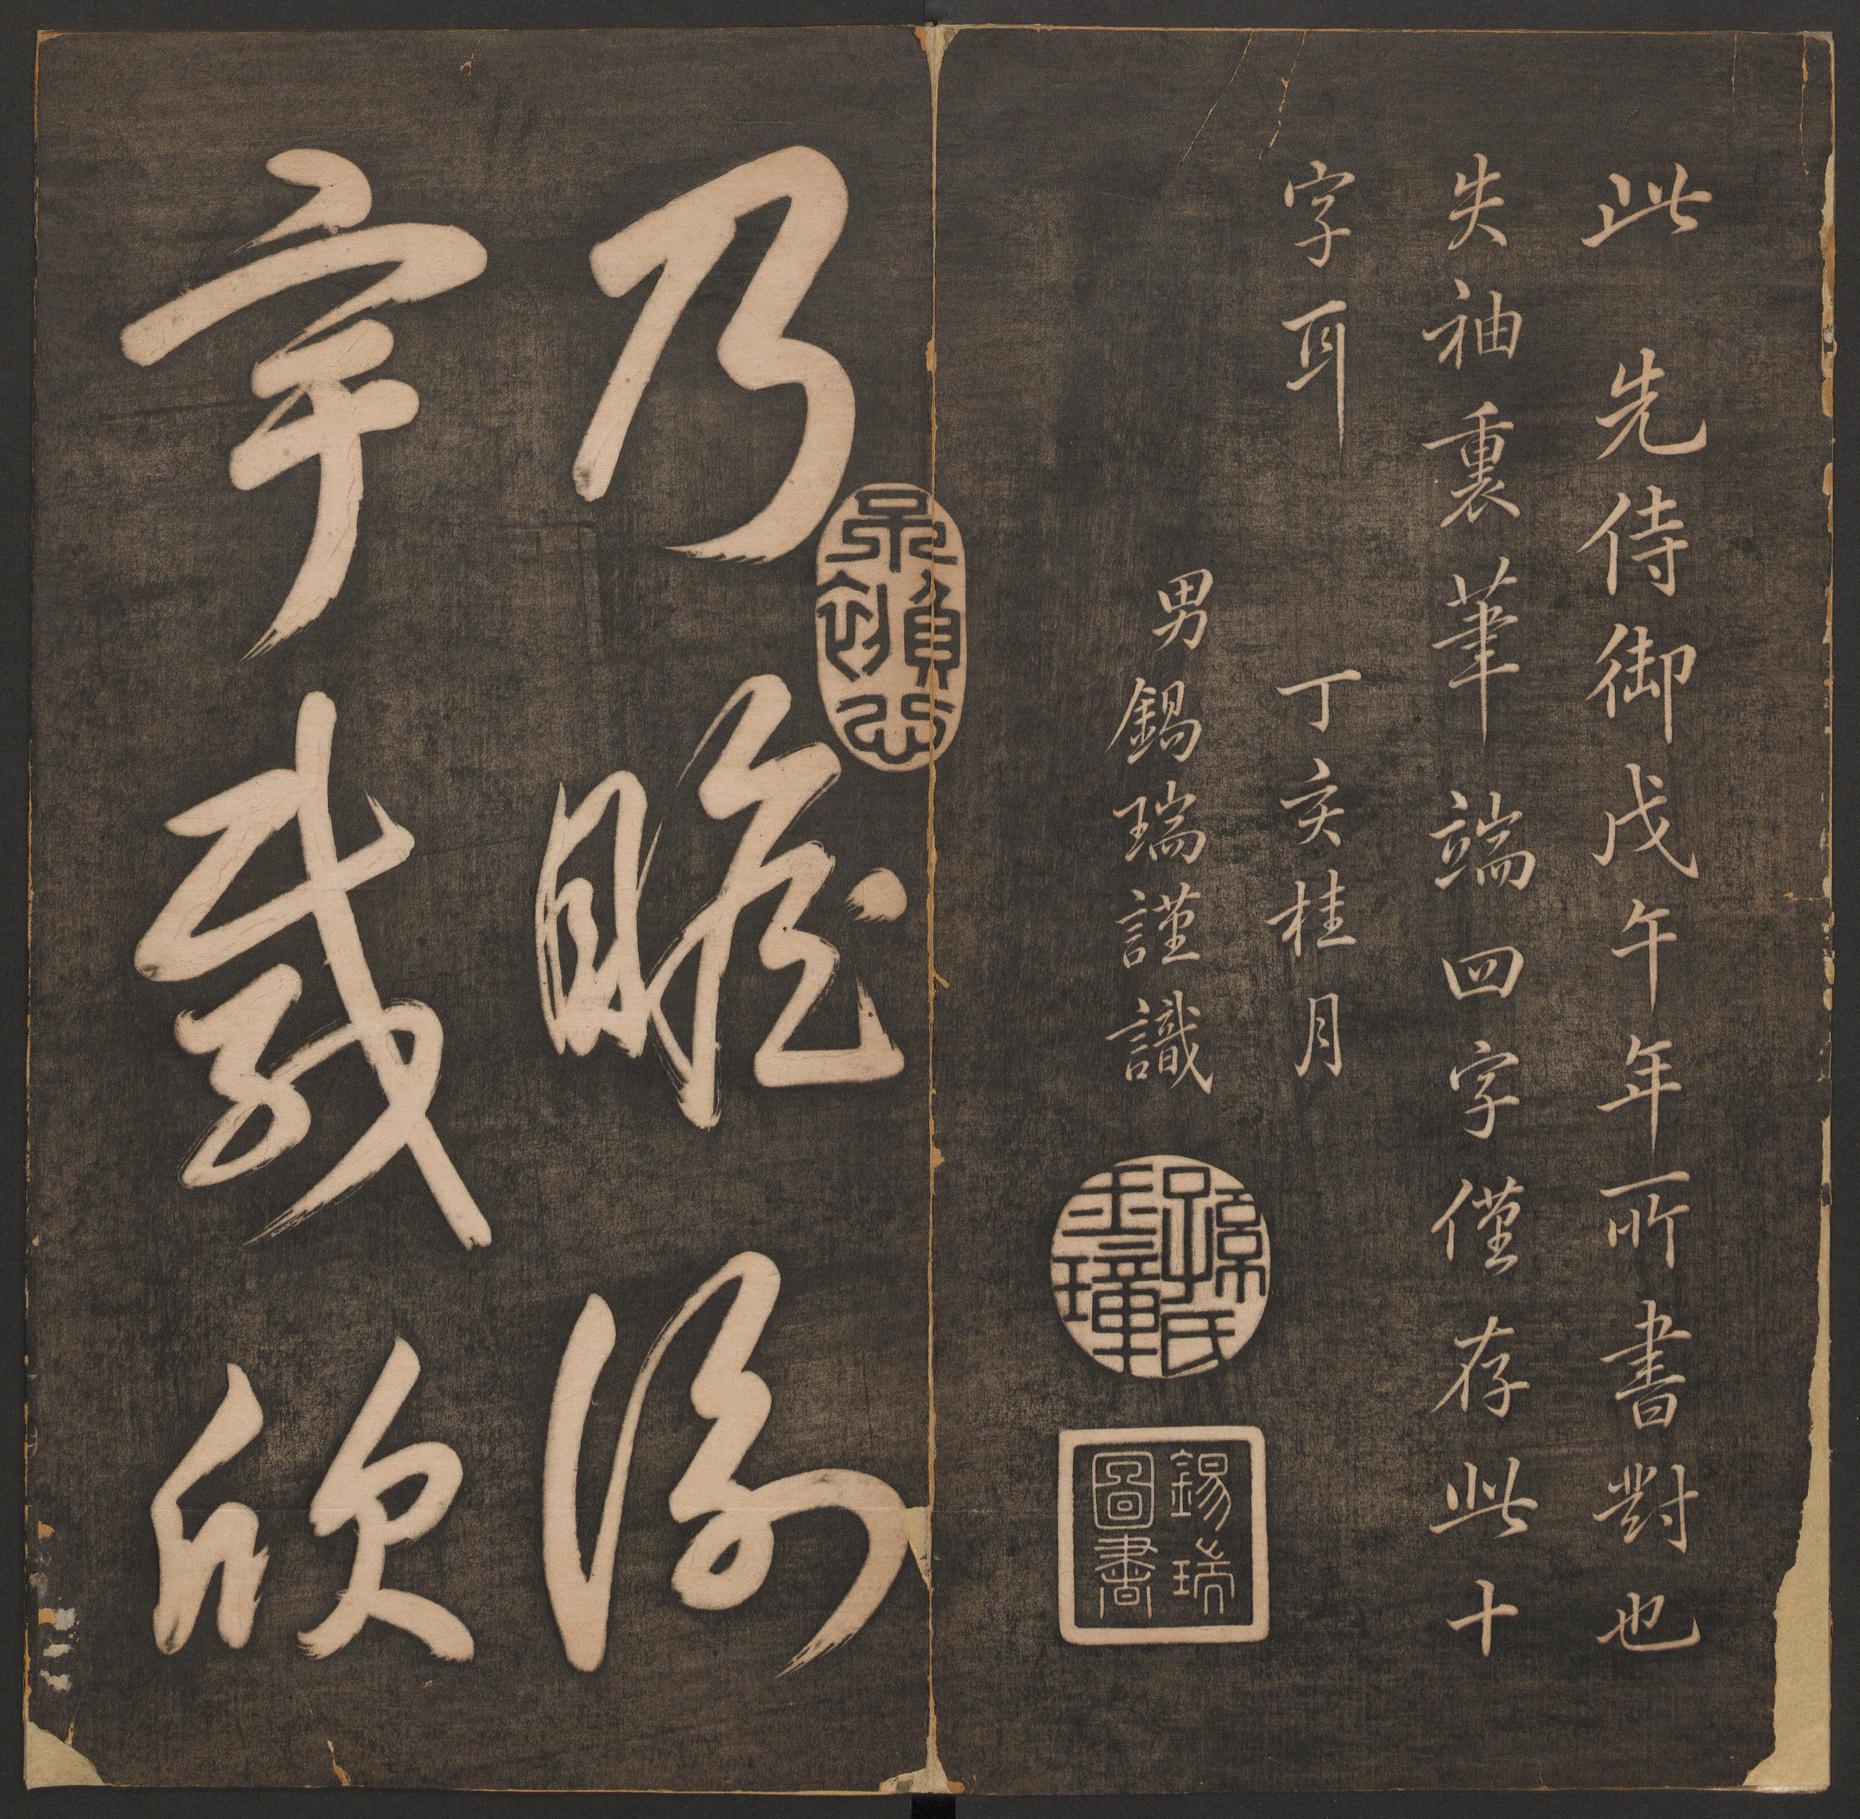 此 先侍御戊午年所書對也
失袖裏筆端四字僅存此十
字耳 丁亥桂月
男錫瑞謹識
錫瑞圖書
乃瞻衡
宇載欣